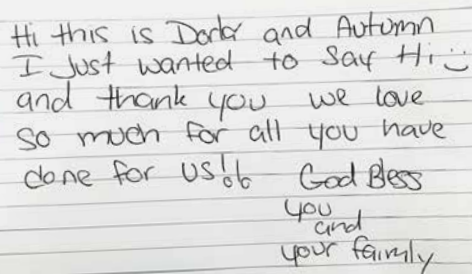 Hi this is and Autumn
I Just wanted to Say Hi :)
and thank you we love
so much for all you have
done for us!!
God Bless
you
and
your faimly